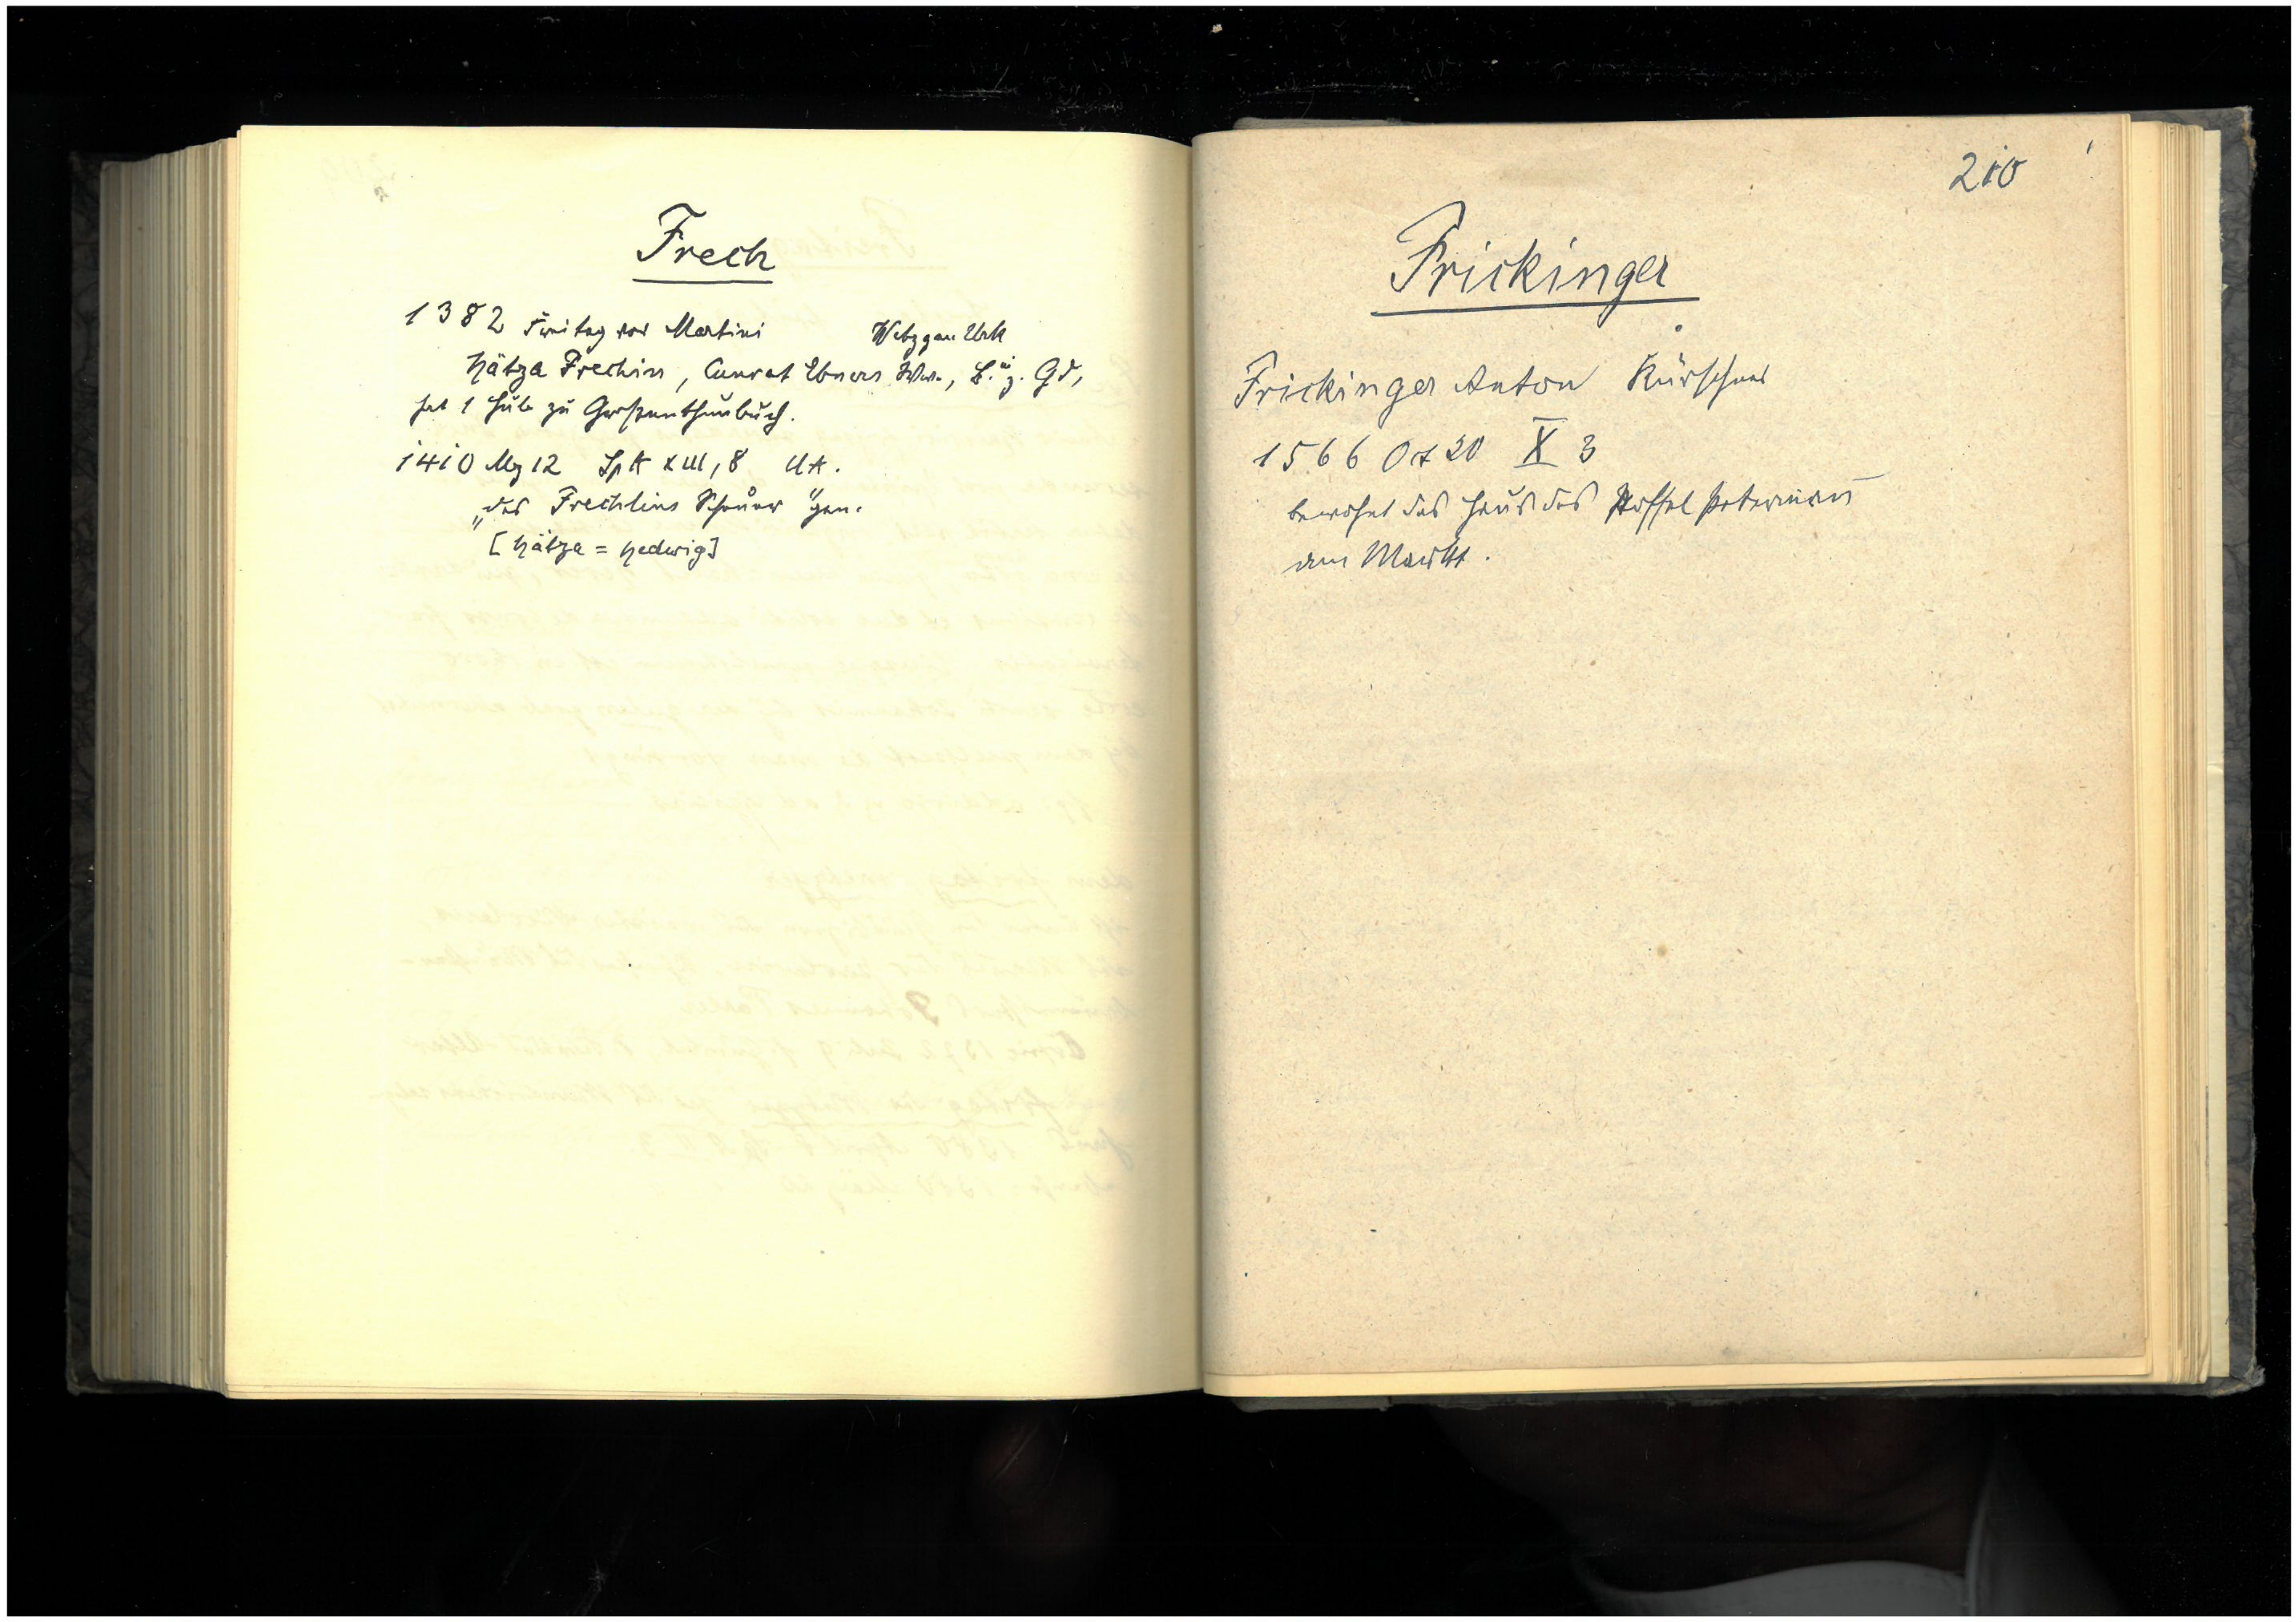 Frech
1382 Freitag vor Martini Wetzgau Urk
Hätza Frechin, Cunrat Ebners Ww., B.in z. Gd,
hat 1 Hub zu Großenthunbuch.
1410 Mz 12 SpA XIII, 8 UA.
"des Frechlins Scheuer" gen.
[Hätza = Hedwig]
210
Frickinger
Frickinger Anton Kürschner
1566 Okt 20 X 3
bewohnt das Haus des Stoffel Peterman̄
am Markt.